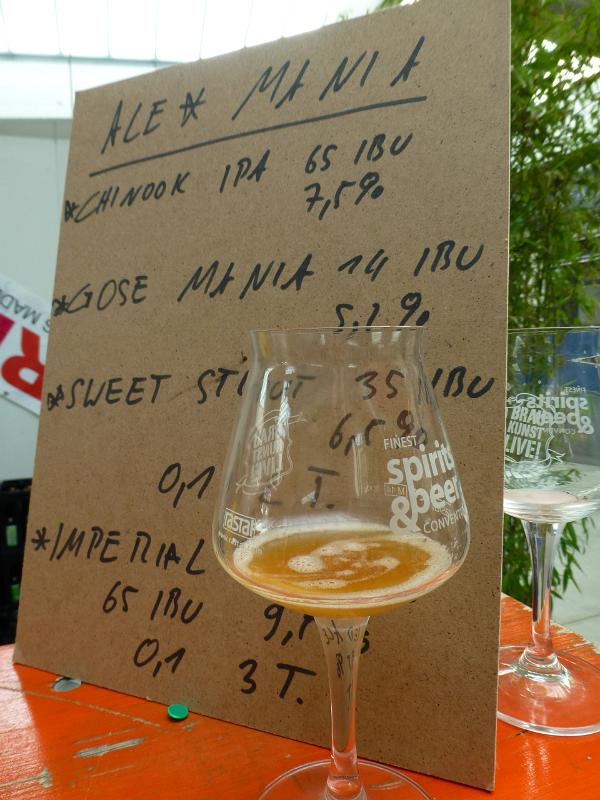 ALE * MANIA
*CHINOOK IPA 65 IBU
7,5%
*GOSE MANIA 14 IBU
5,1%
*SWEET STOUT 35 IBU
6,5%
0,1 2 T.
*IMPERIAL
65 IBU 9,
0,1 3 T.
FINEST
spirits
&beer
CONVENTI
BRAU
KUNST
LIVE!
rastal
FINEST
spirits
&beer
CONVENTI
BRAU
KUNST
LIVE!
S MADE
R